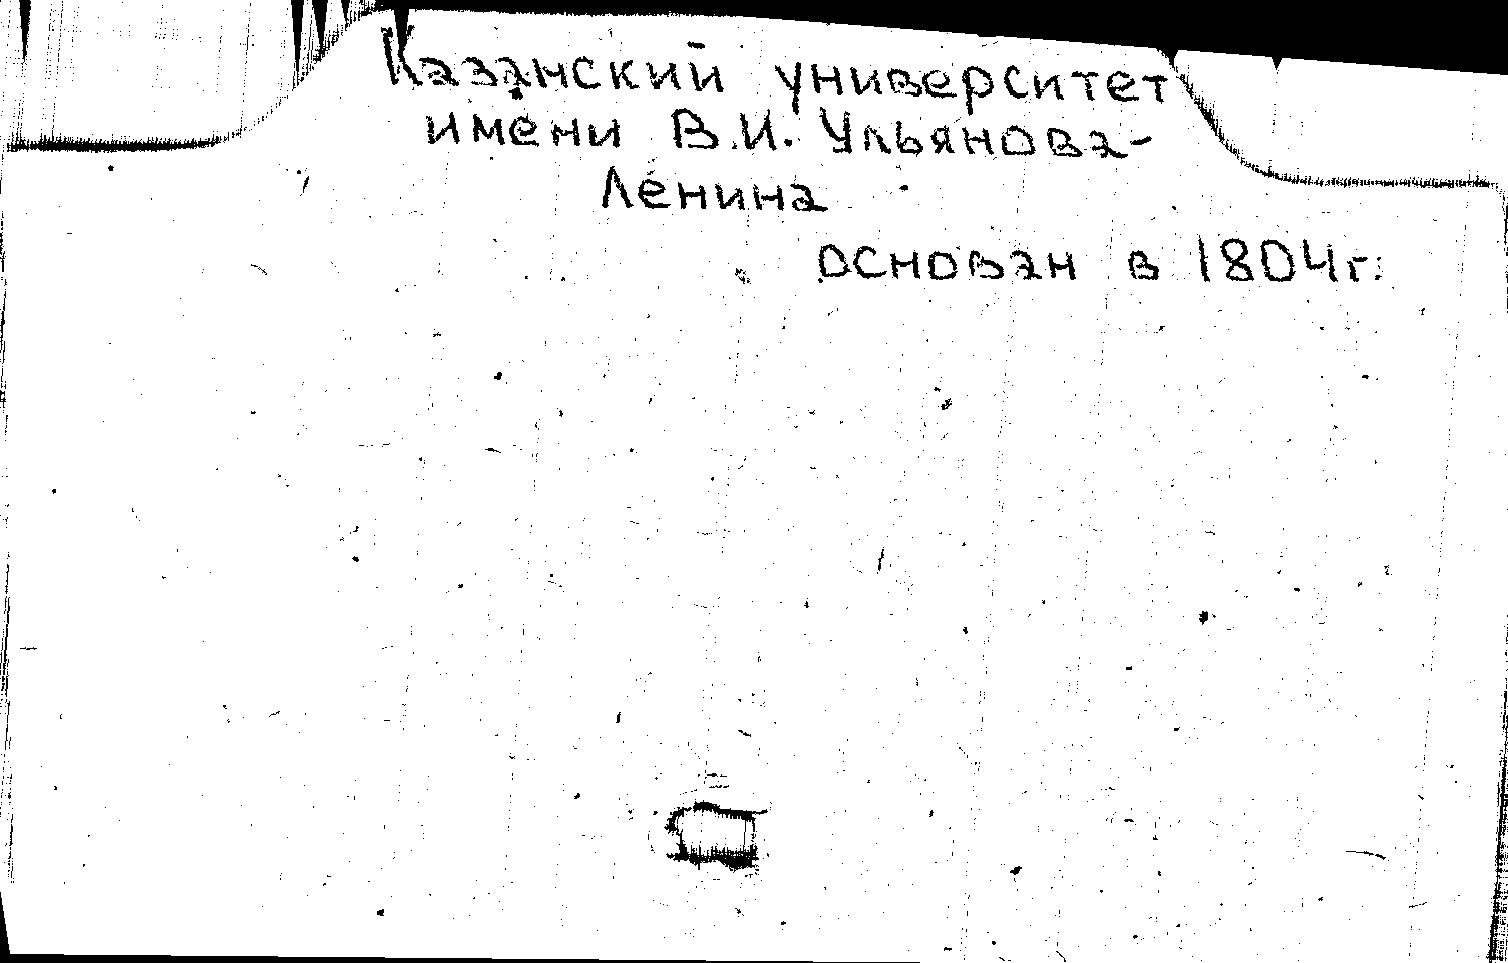 Казанский университет
имени В.И. Ульянова-
Ленина
основан в 1804г.